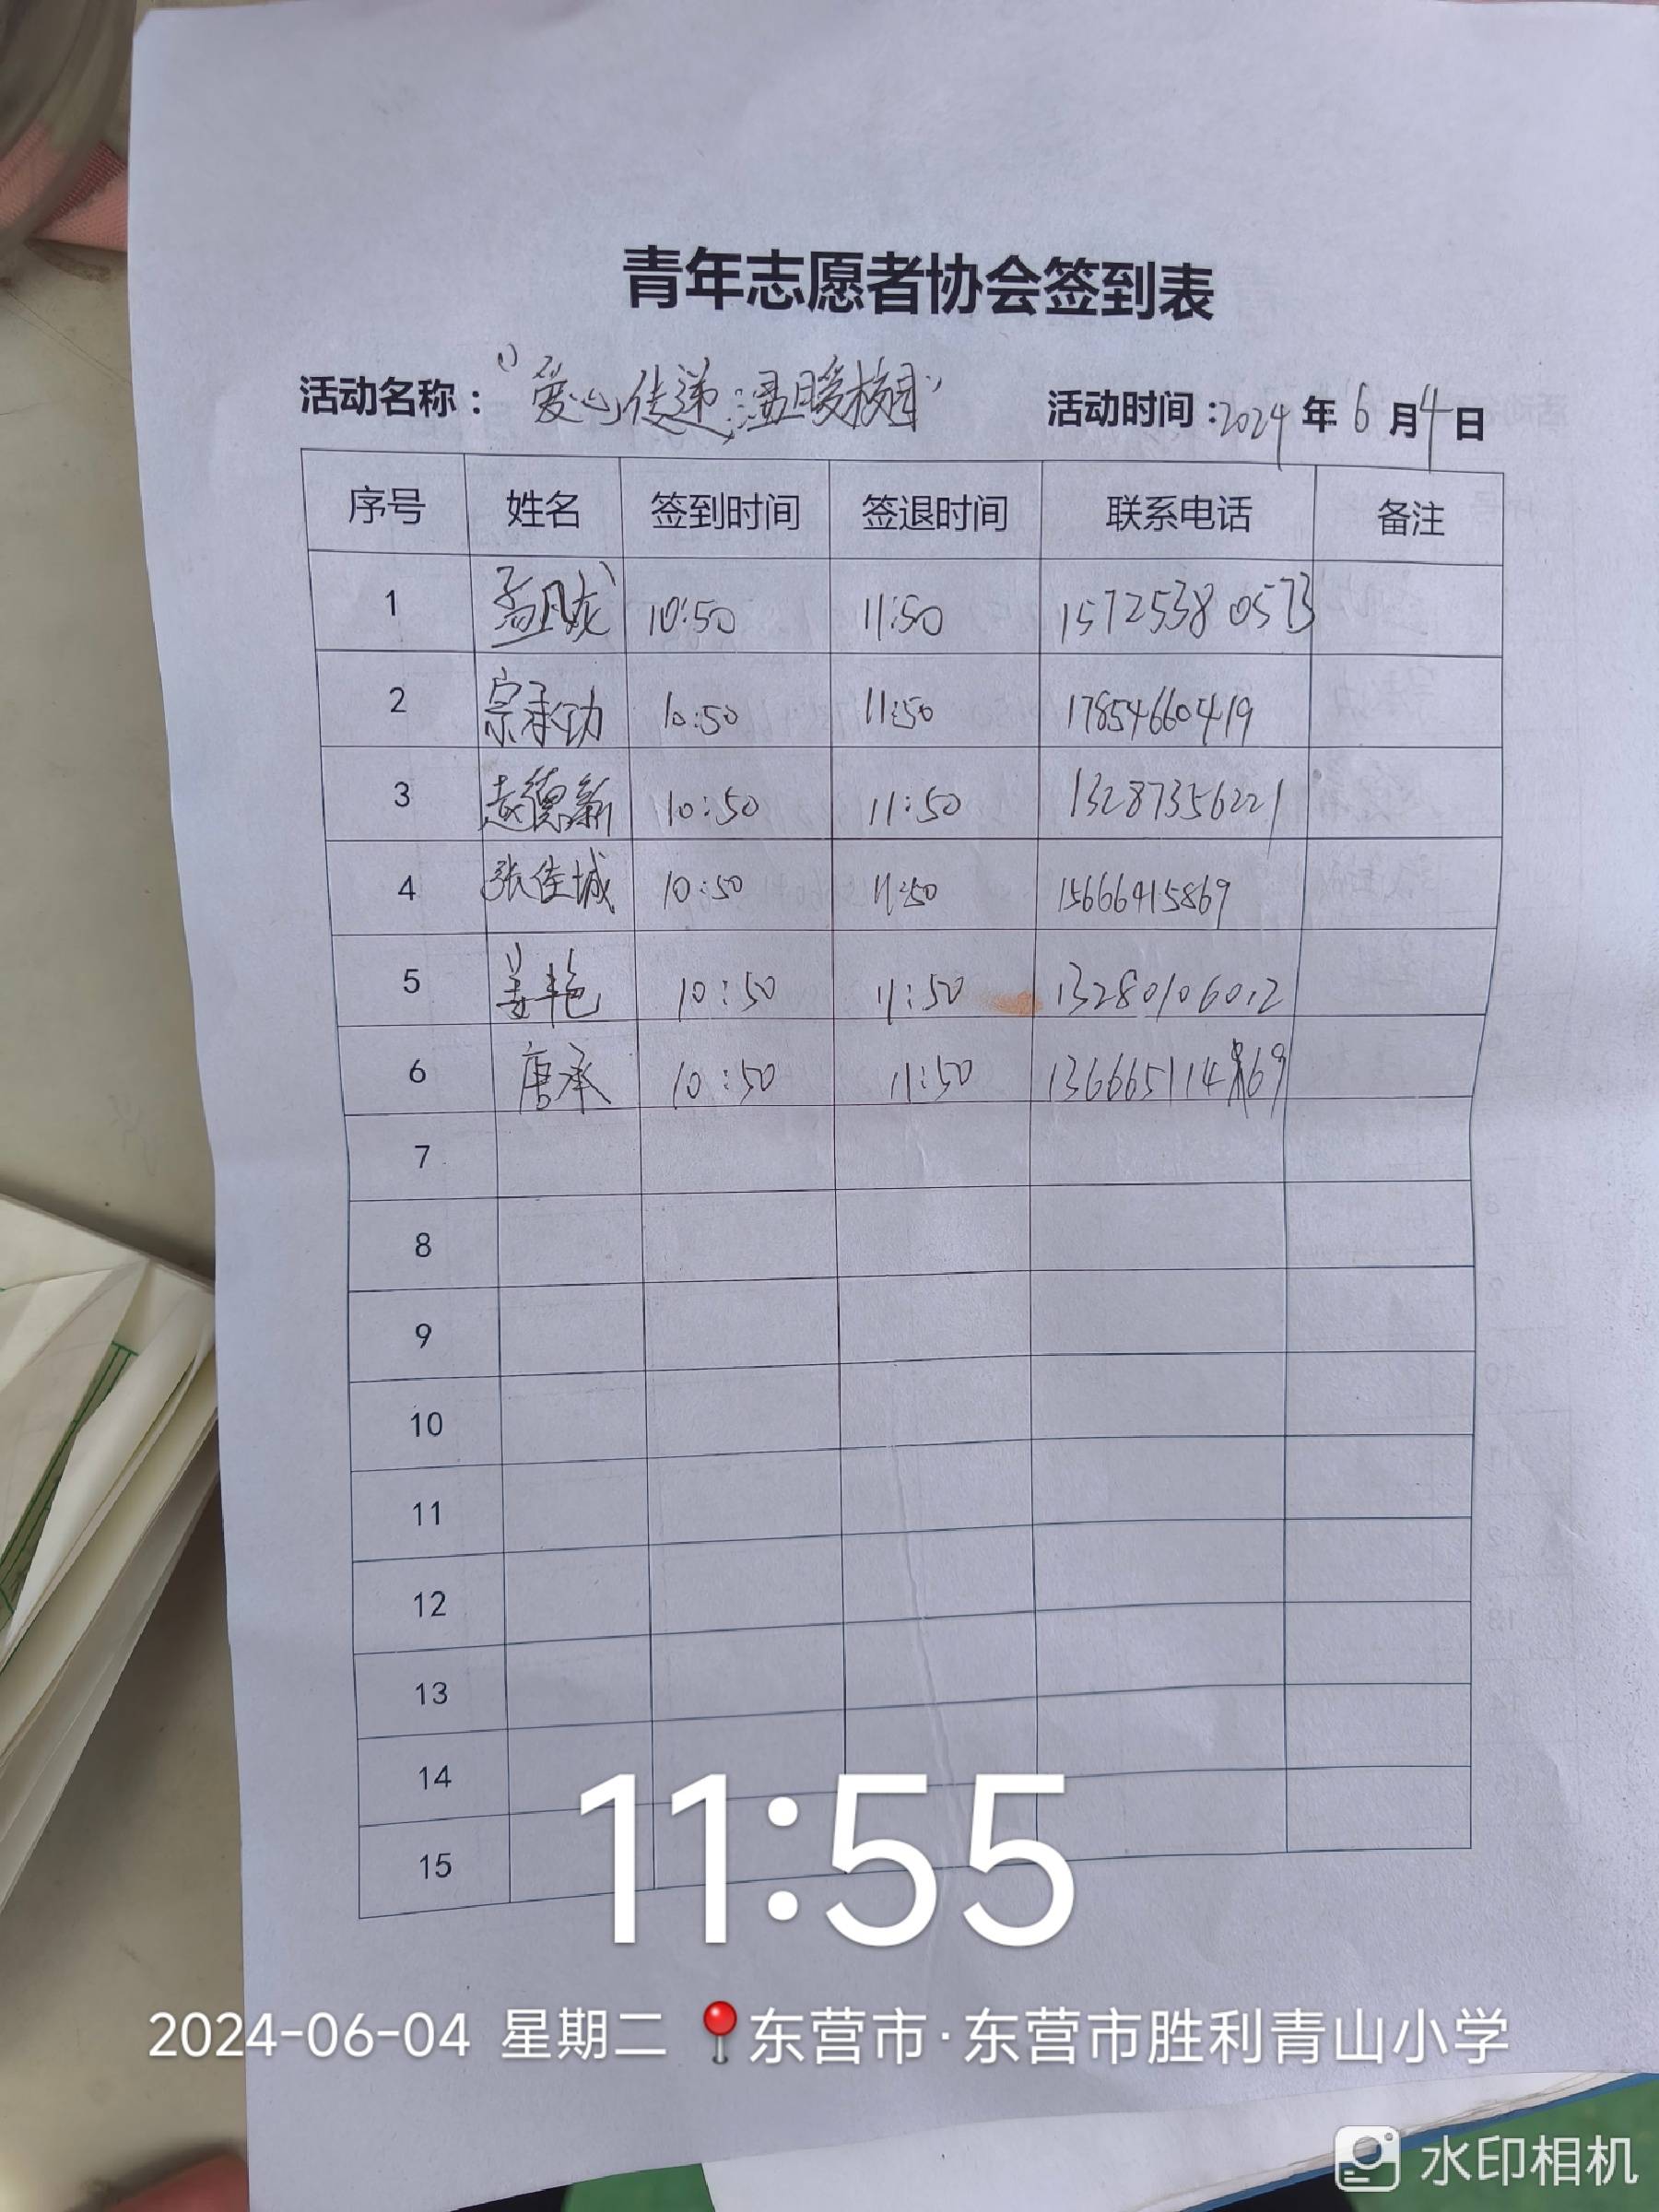 青年志愿者协会签到表
活动名称："爱心传递,温暖校园" 活动时间:2024年6月4日
序号 姓名 签到时间 签退时间 联系电话 备注
1 10:50 11:50 15725380573
2 宗承功 10:50 11:50 17854660419
3 赵德新 10:50 11:50 13287356221
4 张佳城 10:50 11:50 15666415869
5 姜艳 10:50 11:50 13280106012
6 唐承 10:50 11:50
7
8
9
10
11
12
13
14
15
11:55
2024-06-04 星期二 东营市·东营市胜利青山小学
水印相机